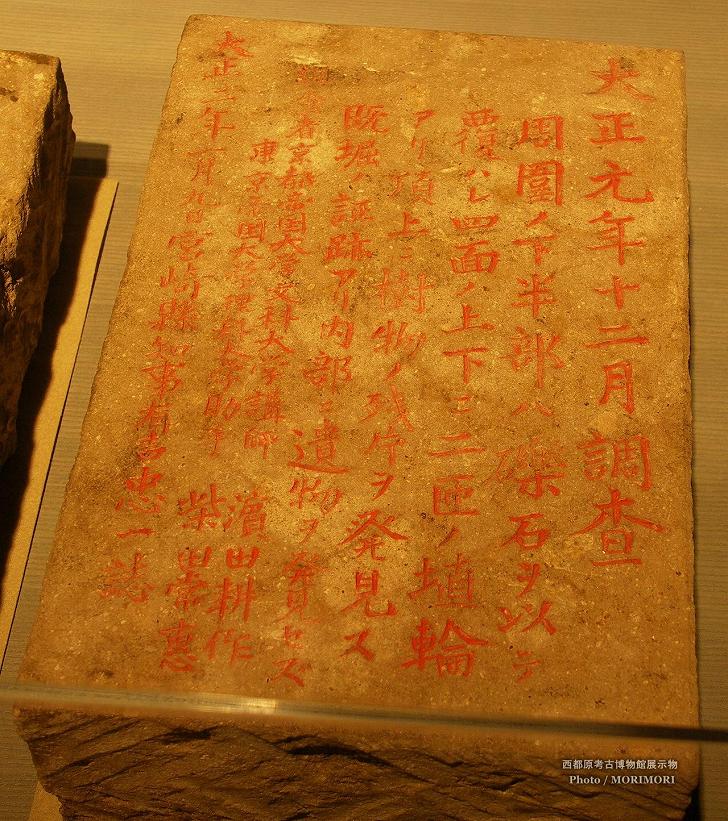 大正元年十二月調査
周圍ノ下半部ハ礫石ヲ以テ
覆ハレ四面ノ上下ニ二匝ノ埴輪
アリ頂上ニ樹物ノ残片ヲ発見ス
既堀ノ証跡アリ内部ニ遺物ヲ発見セズ
調査者京都帝国大学文科大学講師 濱田耕作
東京帝国大学理科大学助手 柴田常惠
大正二年一月九日宮崎縣知事有吉忠一誌
西都原考古博物館展示物
Photo / MORIMORI